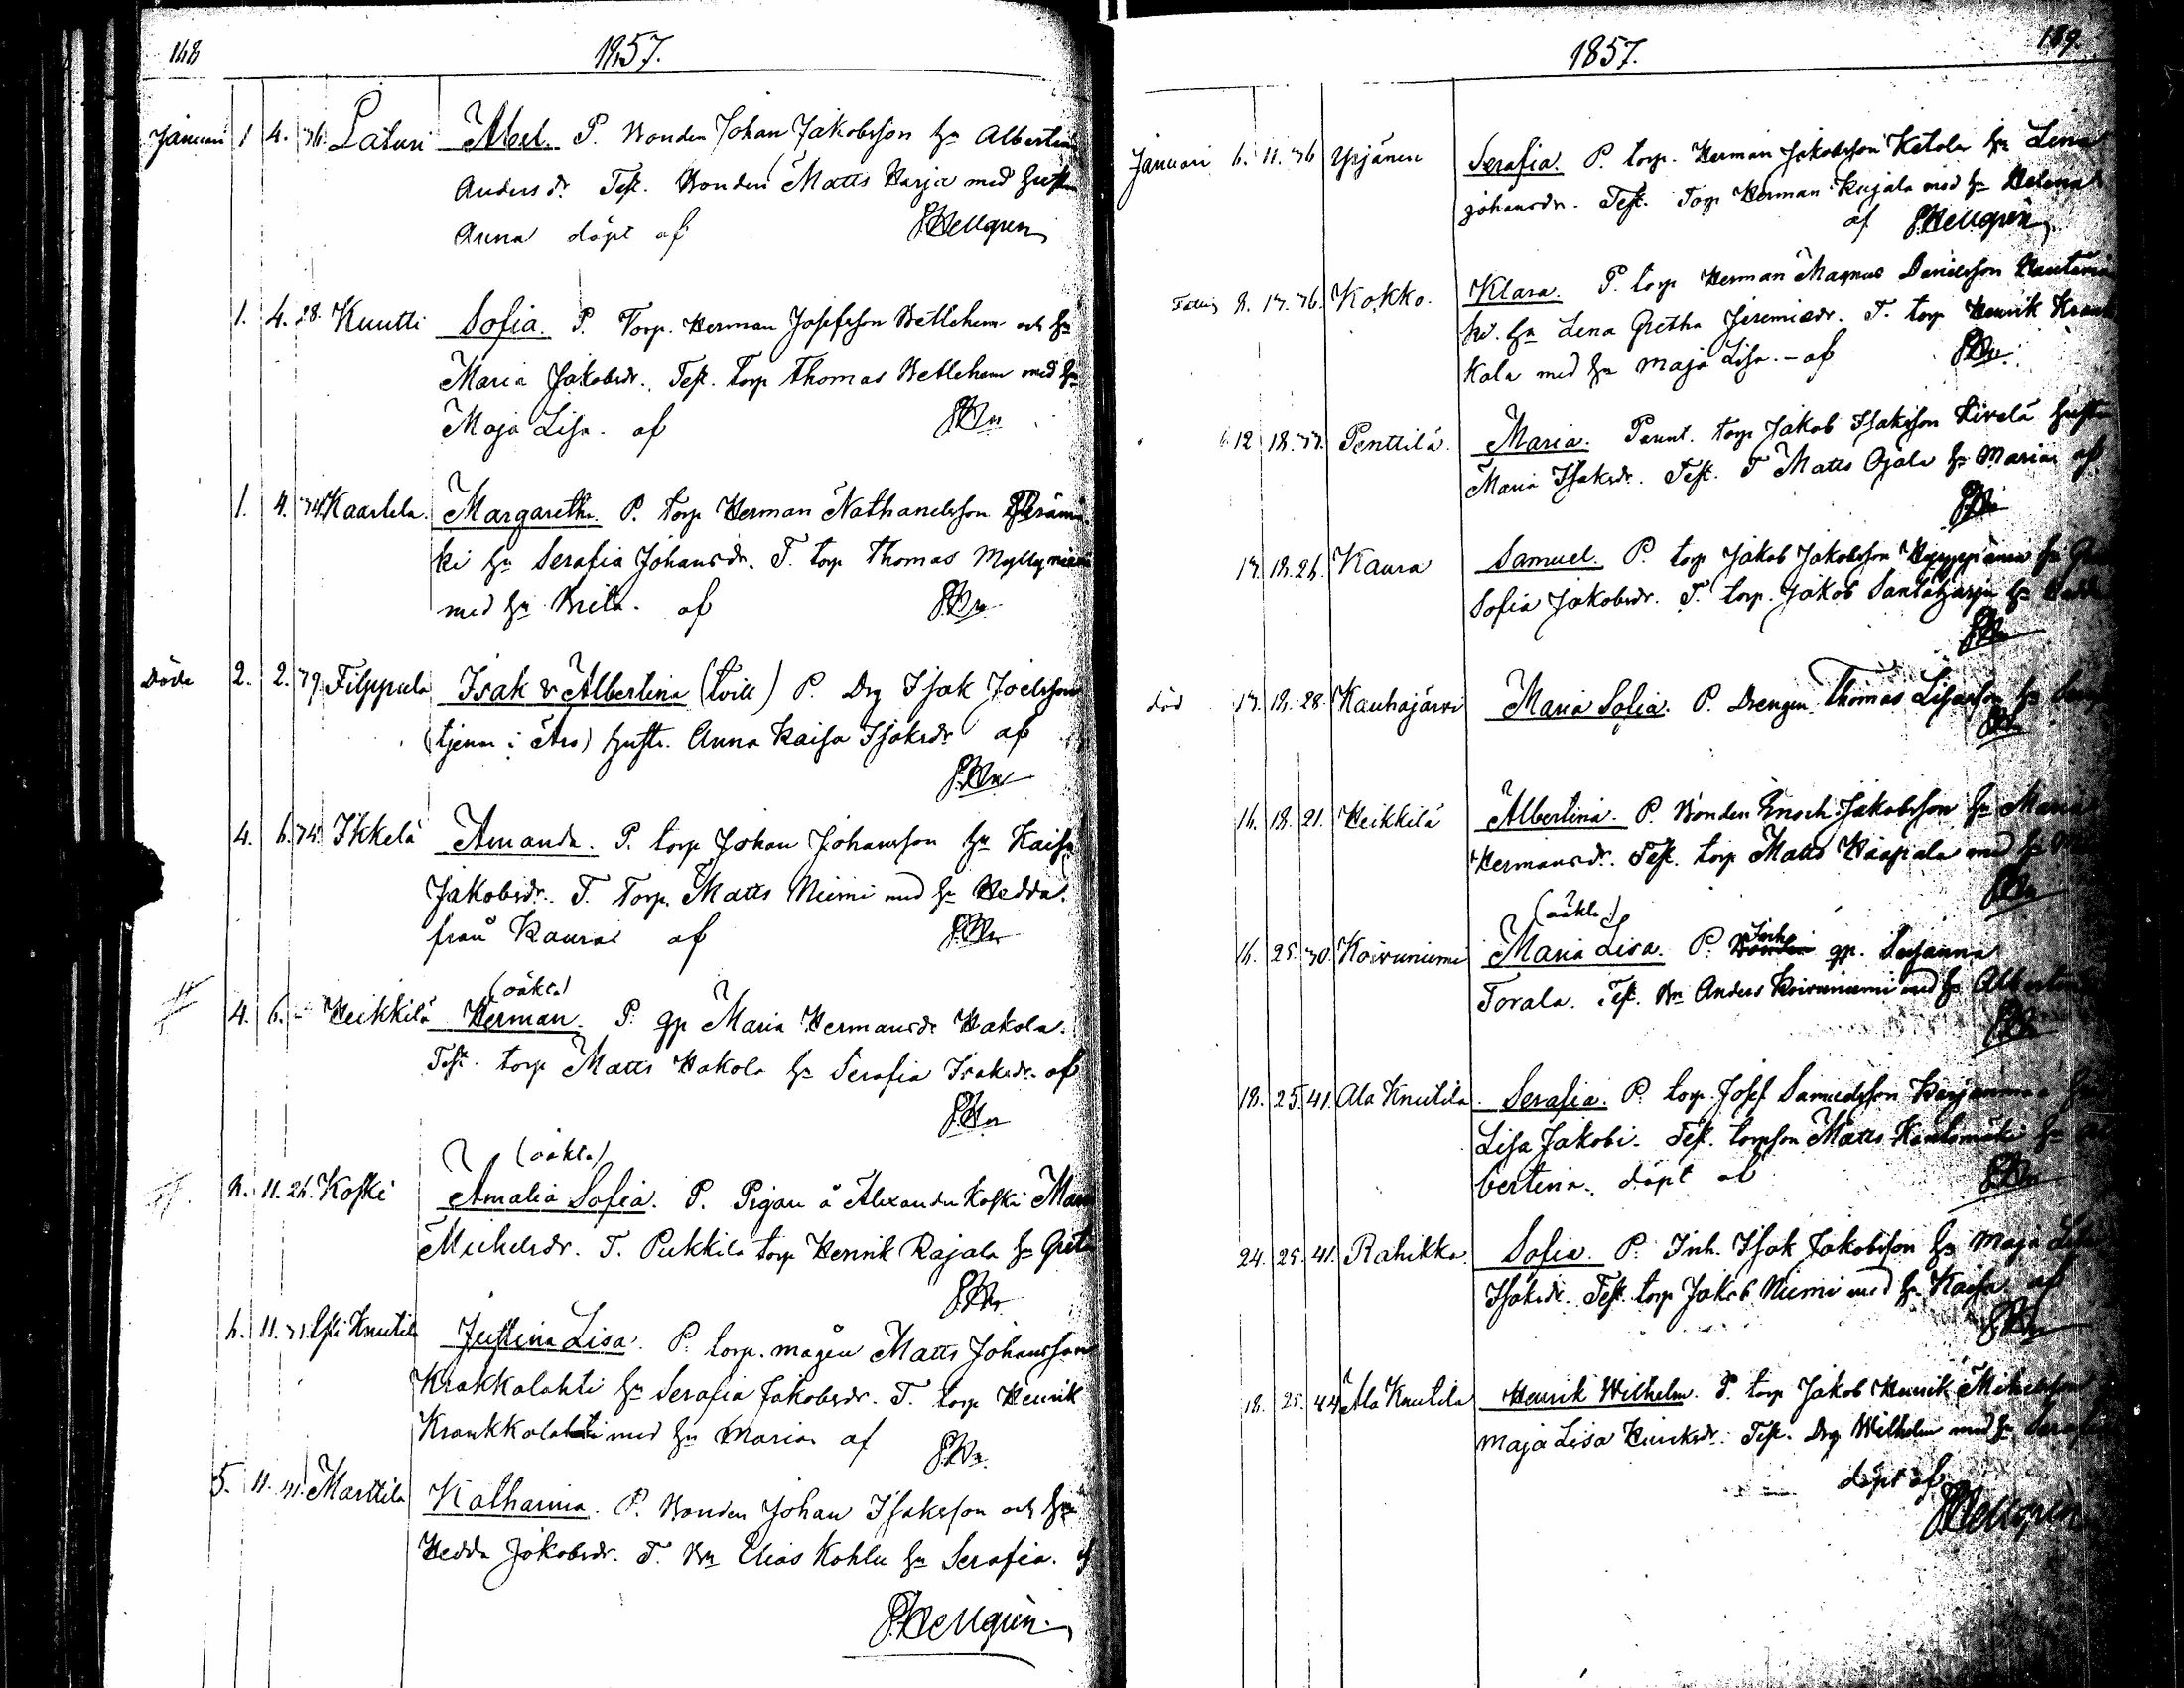 148
1857.
Januari 1 4. 36. Låturi Abel. P. Bonden Johan Jakobsson hu Albertina
Andersdr. Test. Bonden Matts Harja med hustru
Anna döpt af PHellgren
1. 4. 28. Knutti Sofia. P. Torp. Herman Josefsson Betlehem och hu
Maria Jakobsdr. Test. torp Thomas Betlehem med hu
Maja Lisa. af PHn
1. 4. 34. Kaarlela. Margaretha. P. torp Herman Nathanelsson
ki hu Serafia Johansdr. T. torp Thomas Myllyniemi
med hu Brita. af PHn
Döda 2. 2. 39. Filppula Isak & Albertina (tvill) P. Drg Isak Joelsson
(tjenar i Åbo) hustr. Anna Kaisa Isaksdr af
PHn
4. 6. 34. Ikkelä Amanda. P. torp Johan Johansson hu Kaisa
Jakobsdr. T. Torp. Matts Niemi med hu Hedda.
från Kaura af PHn
(oäkta)
4. 6. - Heikkilä Herman. P. qp Maria Hermansdr Hakola.
Test. torp Matts Hakola hu Serafia Isaksdr. af
PHn
(oäkta)
11. 26. Koski Amalia Sofia. P. Pigan å Alexander Koski Maria
Michelsdr. T. Pukkila torp Henrik Rajala hu Greta
PHn
6. 11. 31. Yli Knutila Justina Lisa. P. torp. mågen Matts Johansson
Krakkolahti hu Serafia Jakobsdr. T. torp Henrik
Krankkolahti med hu Maria af PHn.
5. 11. 41. Marttila Katharina. P. Bonden Johan Isaksson och hu
Hedda Jakobsdr. T. Bn Elias Kohlu hu Serafia. af
PHellgren.
149.
1857.
Januari 6. 11. 36 Yrjänen Serafia. P. torp. Herman Jakobsson Ketola hu Lena
Johansdr. Test. Torp Herman Kujala med hu Helena
af PHellgren
Fattig 8. 17. 36. Kokko. Klara. P. torp Herman Magnus Danielsson Hautamä
ki. hu Lena Gretha Jeremiadr. T. torp Henrik Krank
kala med hu Maja Lisa. - af PHn.
12 18. 37. Penttilä. Maria. Parent. torp Jakob Isaksson Kivelä hustru
Maria Isaksdr. Test. T Matts Ojala hu Maria af
PHn
17. 18. 26. Kaura Samuel. P. torp Jakob Jakobsson
Sofia Jakobsdr. T. torp. Jakob Santaharju hu Hedda
PHn
död 17. 18. 28. Kauhajärvi Maria Sofia. P. Drengen Thomas
PHn
16. 18. 21. Heikkilä Albertina. P. Bonden Enoch Jakobsson hu Maria
Hermansdr. Test. torp Matts Haapala med hu
PHn
(oäkta)
16. 25. 30. Koivuniemi Maria Lisa. P. Inh. qp. Susanna
Torala. Test. Bn Anders Koivuniemi med hu Albertina
PHn
18. 25. 41. Ala Knutila. Serafia. P. torp. Josef Samuelsson Harjanmaa hu
Lisa Jakobi. Test. torpson Matts Kantomäki hu Al
bertina. döpt af PHn
24. 25. 41. Rahikka. Sofia. P. Inh. Isak Jakobsson hu Maja Lisa
Isaksdr. Test. torp Jakob Niemi med hu Kaisa. af
PHn
18. 25. 44 Ala Knutila Henrik Wilhelm. P. torp Jakob Henrik Mickelsson
Maja Lisa Henriksdr. Test. Drg Wilhelm med hu Serafia
döpt af
PHellgren